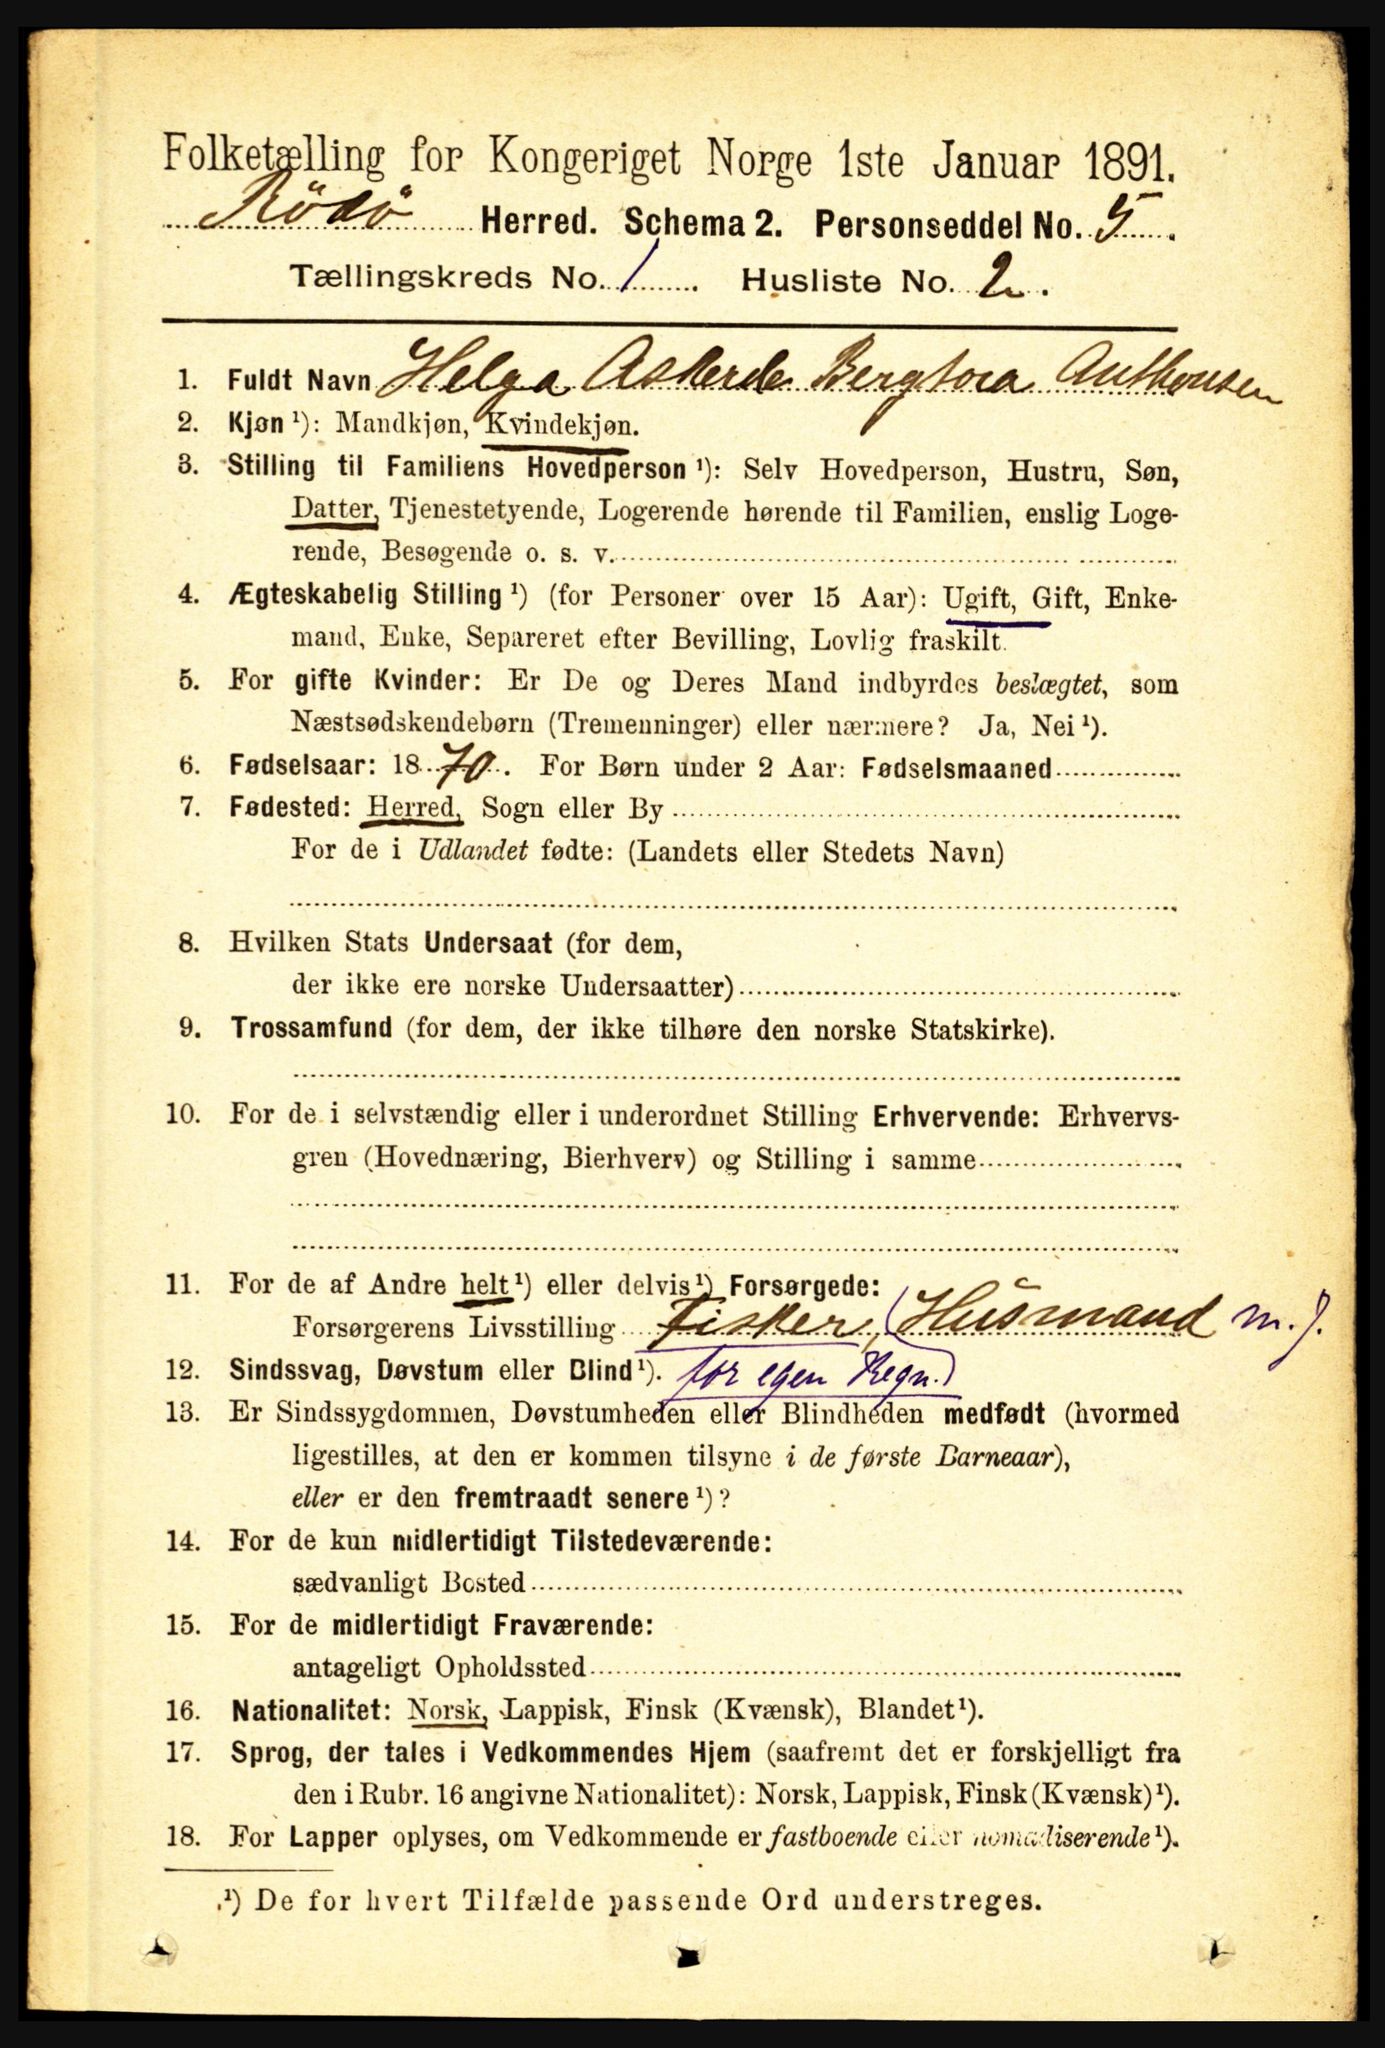 Folketælling for Kongeriget Norge 1ste Januar 1891.
Rödö Herred. Schema 2. Personseddel No. 5.
Tællingskreds No. 1. Husliste No. 2.
1. Fuldt Navn Helga Askerde Bergtora Anthonsen
2. Kjøn ¹): Mandkjøn, Kvindekjøn.
3. Stilling til Familiens Hovedperson ¹): Selv Hovedperson, Hustru, Søn,
Datter, Tjenestetyende, Logerende hørende til Familien, enslig Loge-
rende, Besøgende o. s. v.
4. Ægteskabelig Stilling ¹) (for Personer over 15 Aar): Ugift, Gift, Enke-
mand, Enke, Separeret efter Bevilling, Lovlig fraskilt.
5. For gifte Kvinder: Er De og Deres Mand indbyrdes beslægtet, som
Næstsødskendebørn (Tremenninger) eller nærmere? Ja, Nei ¹).
6. Fødselsaar: 1870. For Børn under 2 Aar: Fødselsmaaned
7. Fødested: Herred, Sogn eller By
For de i Udlandet fødte: (Landets eller Stedets Navn)
8. Hvilken Stats Undersaat (for dem,
der ikke ere norske Undersaatter)
9. Trossamfund (for dem, der ikke tilhøre den norske Statskirke).
10. For de i selvstændig eller i underordnet Stilling Erhvervende: Erhvervs-
gren (Hovednæring, Bierhverv) og Stilling i samme
11. For de af Andre helt ¹) eller delvis ¹) Forsørgede:
Forsørgerens Livsstilling Fisker, (Husmand m. J.
12. Sindssvag, Døvstum eller Blind ¹). for egen Regn.)
13. Er Sindssygdommen, Døvstumheden eller Blindheden medfødt (hvormed
ligestilles, at den er kommen tilsyne i de første Barneaar),
eller er den fremtraadt senere ¹)?
14. For de kun midlertidigt Tilstedeværende:
sædvanligt Bosted
15. For de midlertidigt Fraværende:
antageligt Opholdssted
16. Nationalitet: Norsk, Lappisk, Finsk (Kvænsk), Blandet ¹).
17. Sprog, der tales i Vedkommendes Hjem (saafremt det er forskjelligt fra
den i Rubr. 16 angivne Nationalitet): Norsk, Lappisk, Finsk (Kvænsk) ¹).
18. For Lapper oplyses, om Vedkommende er fastboende eller nomadiserende ¹).
¹) De for hvert Tilfælde passende Ord understreges.